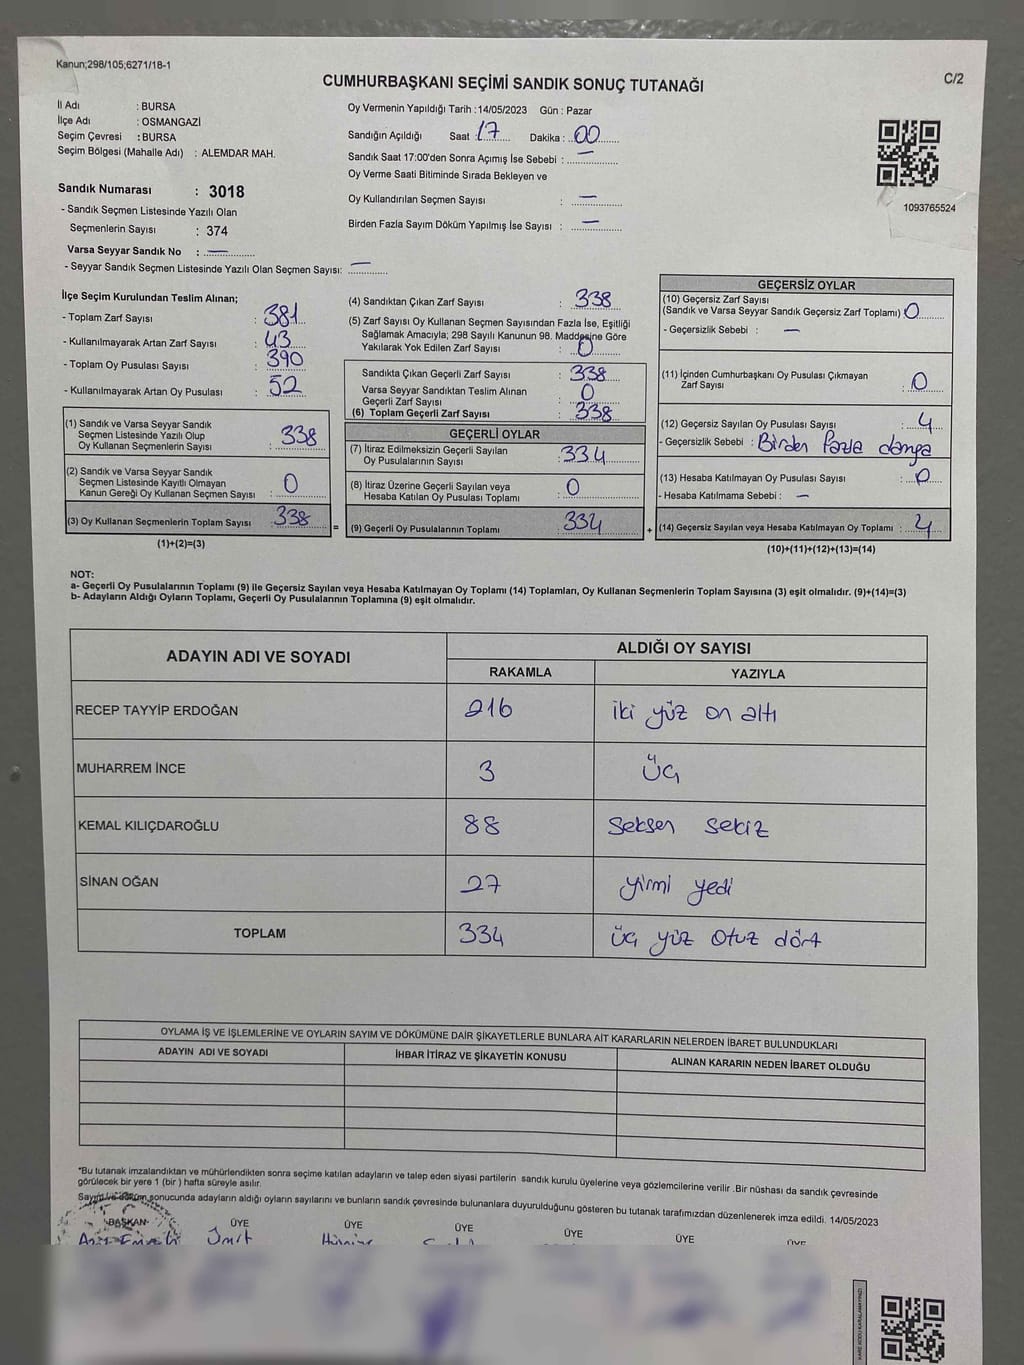 Kanun;298/105;6271/18-1
C/2
CUMHURBAŞKANI SEÇİMİ SANDIK SONUÇ TUTANAĞI
İl Adı : BURSA
İlçe Adı : OSMANGAZİ
Seçim Çevresi : BURSA
Seçim Bölgesi (Mahalle Adı) : ALEMDAR MAH.
Sandık Numarası : 3018
- Sandık Seçmen Listesinde Yazılı Olan
Seçmenlerin Sayısı : 374
Varsa Seyyar Sandık No : —
- Seyyar Sandık Seçmen Listesinde Yazılı Olan Seçmen Sayısı: —
Oy Vermenin Yapıldığı Tarih : 14/05/2023 Gün : Pazar
Sandığın Açıldığı Saat : 17 Dakika : 00
Sandık Saat 17:00'den Sonra Açımış İse Sebebi : —
Oy Verme Saati Bitiminde Sırada Bekleyen ve
Oy Kullandırılan Seçmen Sayısı : —
Birden Fazla Sayım Döküm Yapılmış İse Sayısı : —
1093765524
İlçe Seçim Kurulundan Teslim Alınan;
- Toplam Zarf Sayısı : 381
- Kullanılmayarak Artan Zarf Sayısı : 43
- Toplam Oy Pusulası Sayısı : 390
- Kullanılmayarak Artan Oy Pusulası : 52
(1) Sandık ve Varsa Seyyar Sandık
Seçmen Listesinde Yazılı Olup
Oy Kullanan Seçmenlerin Sayısı : 338
(2) Sandık ve Varsa Seyyar Sandık
Seçmen Listesinde Kayıtlı Olmayan
Kanun Gereği Oy Kullanan Seçmen Sayısı : 0
(3) Oy Kullanan Seçmenlerin Toplam Sayısı : 338
(1)+(2)=(3)
(4) Sandıktan Çıkan Zarf Sayısı : 338
(5) Zarf Sayısı Oy Kullanan Seçmen Sayısından Fazla İse, Eşitliği
Sağlamak Amacıyla; 298 Sayılı Kanunun 98. Maddesine Göre
Yakılarak Yok Edilen Zarf Sayısı : 0
Sandıkta Çıkan Geçerli Zarf Sayısı : 338
Varsa Seyyar Sandıktan Teslim Alınan
Geçerli Zarf Sayısı : 0
(6) Toplam Geçerli Zarf Sayısı : 338
GEÇERLİ OYLAR
(7) İtiraz Edilmeksizin Geçerli Sayılan
Oy Pusulalarının Sayısı : 334
(8) İtiraz Üzerine Geçerli Sayılan veya
Hesaba Katılan Oy Pusulası Toplamı : 0
= (9) Geçerli Oy Pusulalarının Toplamı : 334
GEÇERSİZ OYLAR
(10) Geçersiz Zarf Sayısı
(Sandık ve Varsa Seyyar Sandık Geçersiz Zarf Toplamı) 0
- Geçersizlik Sebebi : —
(11) İçinden Cumhurbaşkanı Oy Pusulası Çıkmayan
Zarf Sayısı : 0
(12) Geçersiz Sayılan Oy Pusulası Sayısı : 4
- Geçersizlik Sebebi : Birden fazla damga
(13) Hesaba Katılmayan Oy Pusulası Sayısı : 0
- Hesaba Katılmama Sebebi : —
+ (14) Geçersiz Sayılan veya Hesaba Katılmayan Oy Toplamı : 4
(10)+(11)+(12)+(13)=(14)
NOT:
a- Geçerli Oy Pusulalarının Toplamı (9) ile Geçersiz Sayılan veya Hesaba Katılmayan Oy Toplamı (14) Toplamları, Oy Kullanan Seçmenlerin Toplam Sayısına (3) eşit olmalıdır. (9)+(14)=(3)
b- Adayların Aldığı Oyların Toplamı, Geçerli Oy Pusulalarının Toplamına (9) eşit olmalıdır.
ADAYIN ADI VE SOYADI
ALDIĞI OY SAYISI
RAKAMLA YAZIYLA
RECEP TAYYİP ERDOĞAN 216 iki yüz on altı
MUHARREM İNCE 3 üç
KEMAL KILIÇDAROĞLU 88 Seksen sekiz
SİNAN OĞAN 27 yirmi yedi
TOPLAM 334 üç yüz otuz dört
OYLAMA İŞ VE İŞLEMLERİNE VE OYLARIN SAYIM VE DÖKÜMÜNE DAİR ŞİKAYETLERLE BUNLARA AİT KARARLARIN NELERDEN İBARET BULUNDUKLARI
ADAYIN ADI VE SOYADI İHBAR İTİRAZ VE ŞİKAYETİN KONUSU ALINAN KARARIN NEDEN İBARET OLDUĞU
*Bu tutanak imzalandıktan ve mühürlendikten sonra seçime katılan adayların ve talep eden siyasi partilerin sandık kurulu üyelerine veya gözlemcilerine verilir .Bir nüshası da sandık çevresinde
görülecek bir yere 1 (bir ) hafta süreyle asılır.
Sayım ve döküm sonucunda adayların aldığı oyların sayılarını ve bunların sandık çevresinde bulunanlara duyurulduğunu gösteren bu tutanak tarafımızdan düzenlenerek imza edildi. 14/05/2023
BAŞKAN ÜYE ÜYE ÜYE ÜYE ÜYE ÜYE
Ümit
KARE KODU KARALAMAYINIZ!